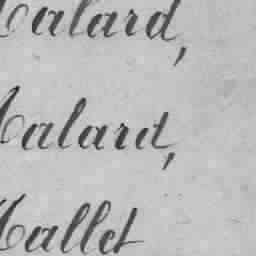 Malard,
Malard,
Mallet